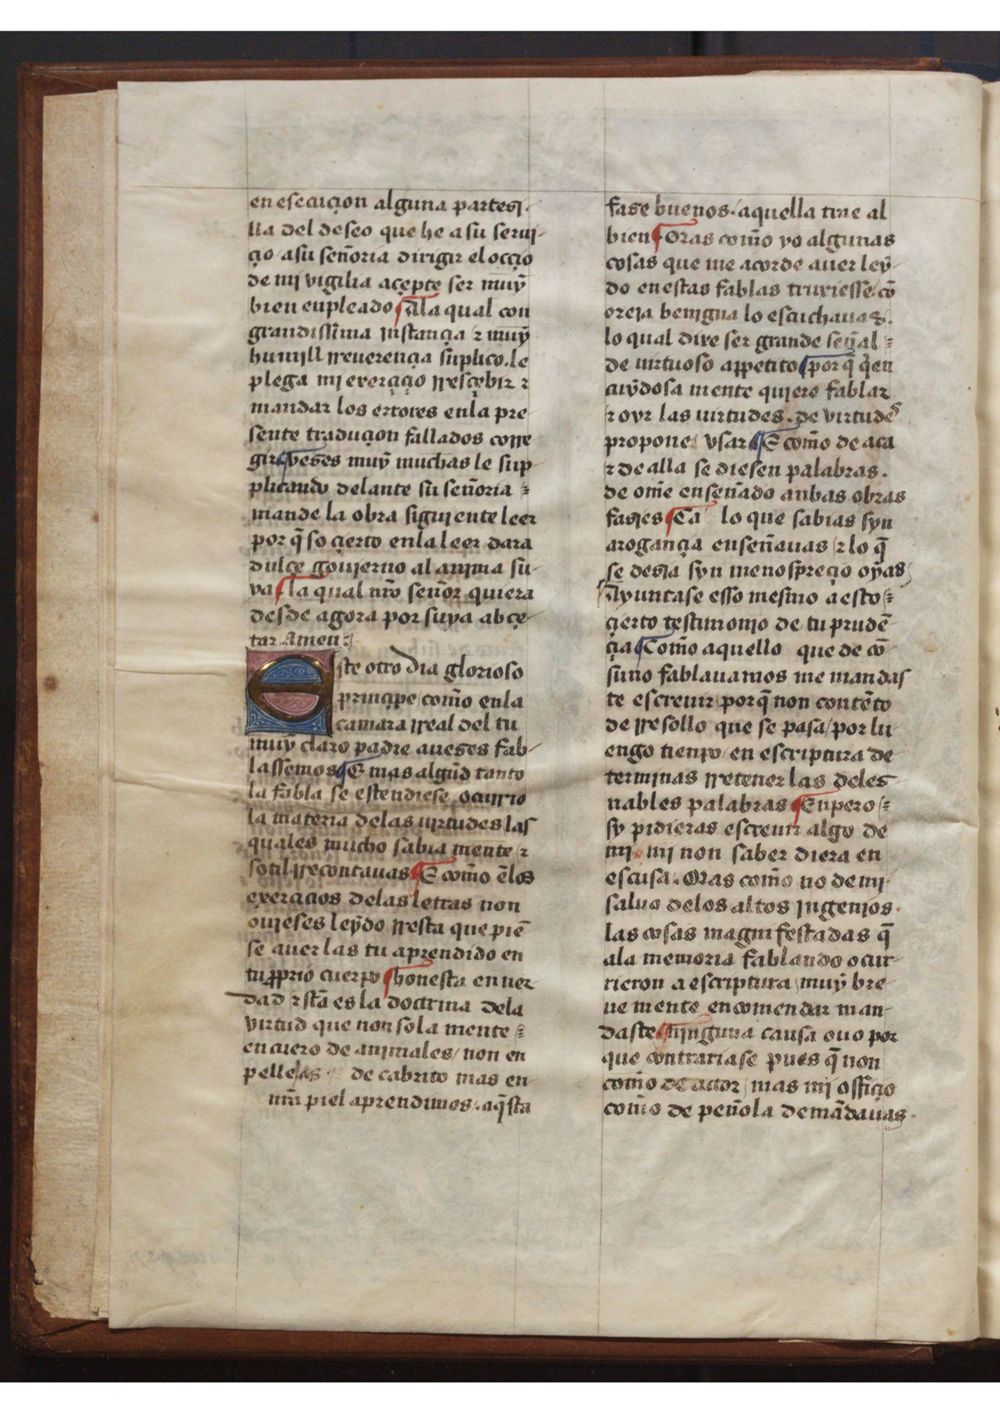 en esecuçion alguna partezi-
lla del deseo que he a su serui-
çio a su señoria dirigir el oçio
de mi vigilia açepte ser muy
bien enpleado ¶ A la qual con
grandissima instançia ⁊ muy
humill rreuerençia suplico. le
plega mi exerçiçio rresçebir ⁊
mandar los errores en la pre-
sente traduçion fallados corre
gir ¶ vezes muy muchas le sup-
plicando delante su señoria
mande la obra siguiente leer
por q̃ so çierto en la leer dara
dulçe gouierno al anima su-
ya ¶ la qual nr̃o señor quiera
desde agora por suya abçe-
tar Amen :
Este otro dia glorioso
prinçipe com̃o en la
camara rreal del tu
muy claro padre a uezes fab-
lassemos ¶ E mas algũd tanto
la fabla se estendiese ocurrio
la materia de las uirtudes las
quales mucho sabia mente ⁊
sotil rrecontauas ¶ E com̃o ẽ los
exerçiçios de las letras non
ouieses leydo rresta que piẽ-
se auer las tu aprendido en
tu p̃prio cuerpo ¶ honesta en uer
dad ⁊ sñta es la doctrina de la
virtud que non sola mente
en cuero de animales / non en
pellejas de cabrito mas en
nr̃a piel aprendimos . aq̃sta
faze buenos . aquella tirae al
bien ¶ Mas com̃o yo algunas
cosas que me acorde auer ley-
do en estas fablas truxiesse / cõ
oreja benigna lo escuchauas.
lo qual dixe ser grande señal
de uirtuoso appetito ¶ por q̃ q̃en
cuydosa mente quiere fablar
⁊ oyr las uirtudes . de virtudes
propone vsar ¶ E com̃o de aca
⁊ de alla se diesen palabras .
de om̃e enseñado anbas obras
fazies ¶ Ca lo que sabias syn
arogançia enseñauas / ⁊ lo q̃
se dezia syn menospreçio oyas
Ayuntase esso mesmo a esto
çierto testimonio de tu prudẽ-
çia ¶ Com̃o aquello que de cõ-
suno fablauamos me mandas
te escreuir / por q̃ non contẽto
de rresollo que se pasa / por lu-
engo tienpo en escriptura de
terminas rretener las delez-
nables palabras ¶ Enpero
sy pidieras escreuir algo de
mi mi non saber diera en
escusa . Mas com̃o no de mi
saluo de los altos ingenios .
las cosas magnifestadas q̃
a la memoria fablando ocur-
rieron a escriptura muy bre-
ue mente encomendar man-
daste ¶ ninguna causa ouo por
que contrariase pues q̃ non
com̃o de actor / mas mi offiçio
com̃o de peñola demãdauas .